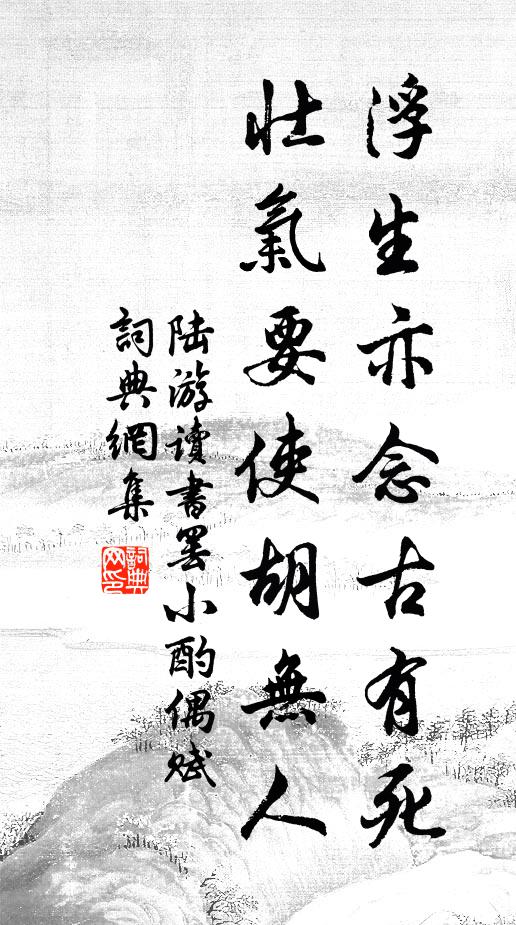 浮生亦念古有死
壯氣要使胡無人
陆游讀書罢小酌偶赋
詞典網集
詞典网印